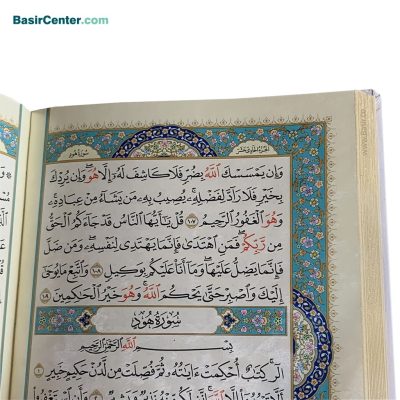 BasirCenter.com
سورة هود
وَإِن يَمْسَسْكَ ٱللَّهُ بِضُرٍّ فَلَا كَاشِفَ لَهُۥٓ إِلَّا هُوَ ۖ وَإِن يُرِدْكَ
بِخَيْرٍ فَلَا رَآدَّ لِفَضْلِهِۦ ۚ يُصِيبُ بِهِۦ مَن يَشَآءُ مِنْ عِبَادِهِۦ ۚ
وَهُوَ ٱلْغَفُورُ ٱلرَّحِيمُ ١٠٧ قُلْ يَٰٓأَيُّهَا ٱلنَّاسُ قَدْ جَآءَكُمُ ٱلْحَقُّ
مِن رَّبِّكُمْ ۖ فَمَنِ ٱهْتَدَىٰ فَإِنَّمَا يَهْتَدِى لِنَفْسِهِۦ ۖ وَمَن ضَلَّ
فَإِنَّمَا يَضِلُّ عَلَيْهَا ۖ وَمَآ أَنَا۠ عَلَيْكُم بِوَكِيلٍ ١٠٨ وَٱتَّبِعْ مَا يُوحَىٰٓ
إِلَيْكَ وَٱصْبِرْ حَتَّىٰ يَحْكُمَ ٱللَّهُ ۚ وَهُوَ خَيْرُ ٱلْحَٰكِمِينَ ١٠٩
سُورَةُ هُودٍ
بِسْمِ ٱللَّهِ ٱلرَّحْمَٰنِ ٱلرَّحِيمِ
الٓر ۚ كِتَٰبٌ أُحْكِمَتْ ءَايَٰتُهُۥ ثُمَّ فُصِّلَتْ مِن لَّدُنْ حَكِيمٍ خَبِيرٍ ١